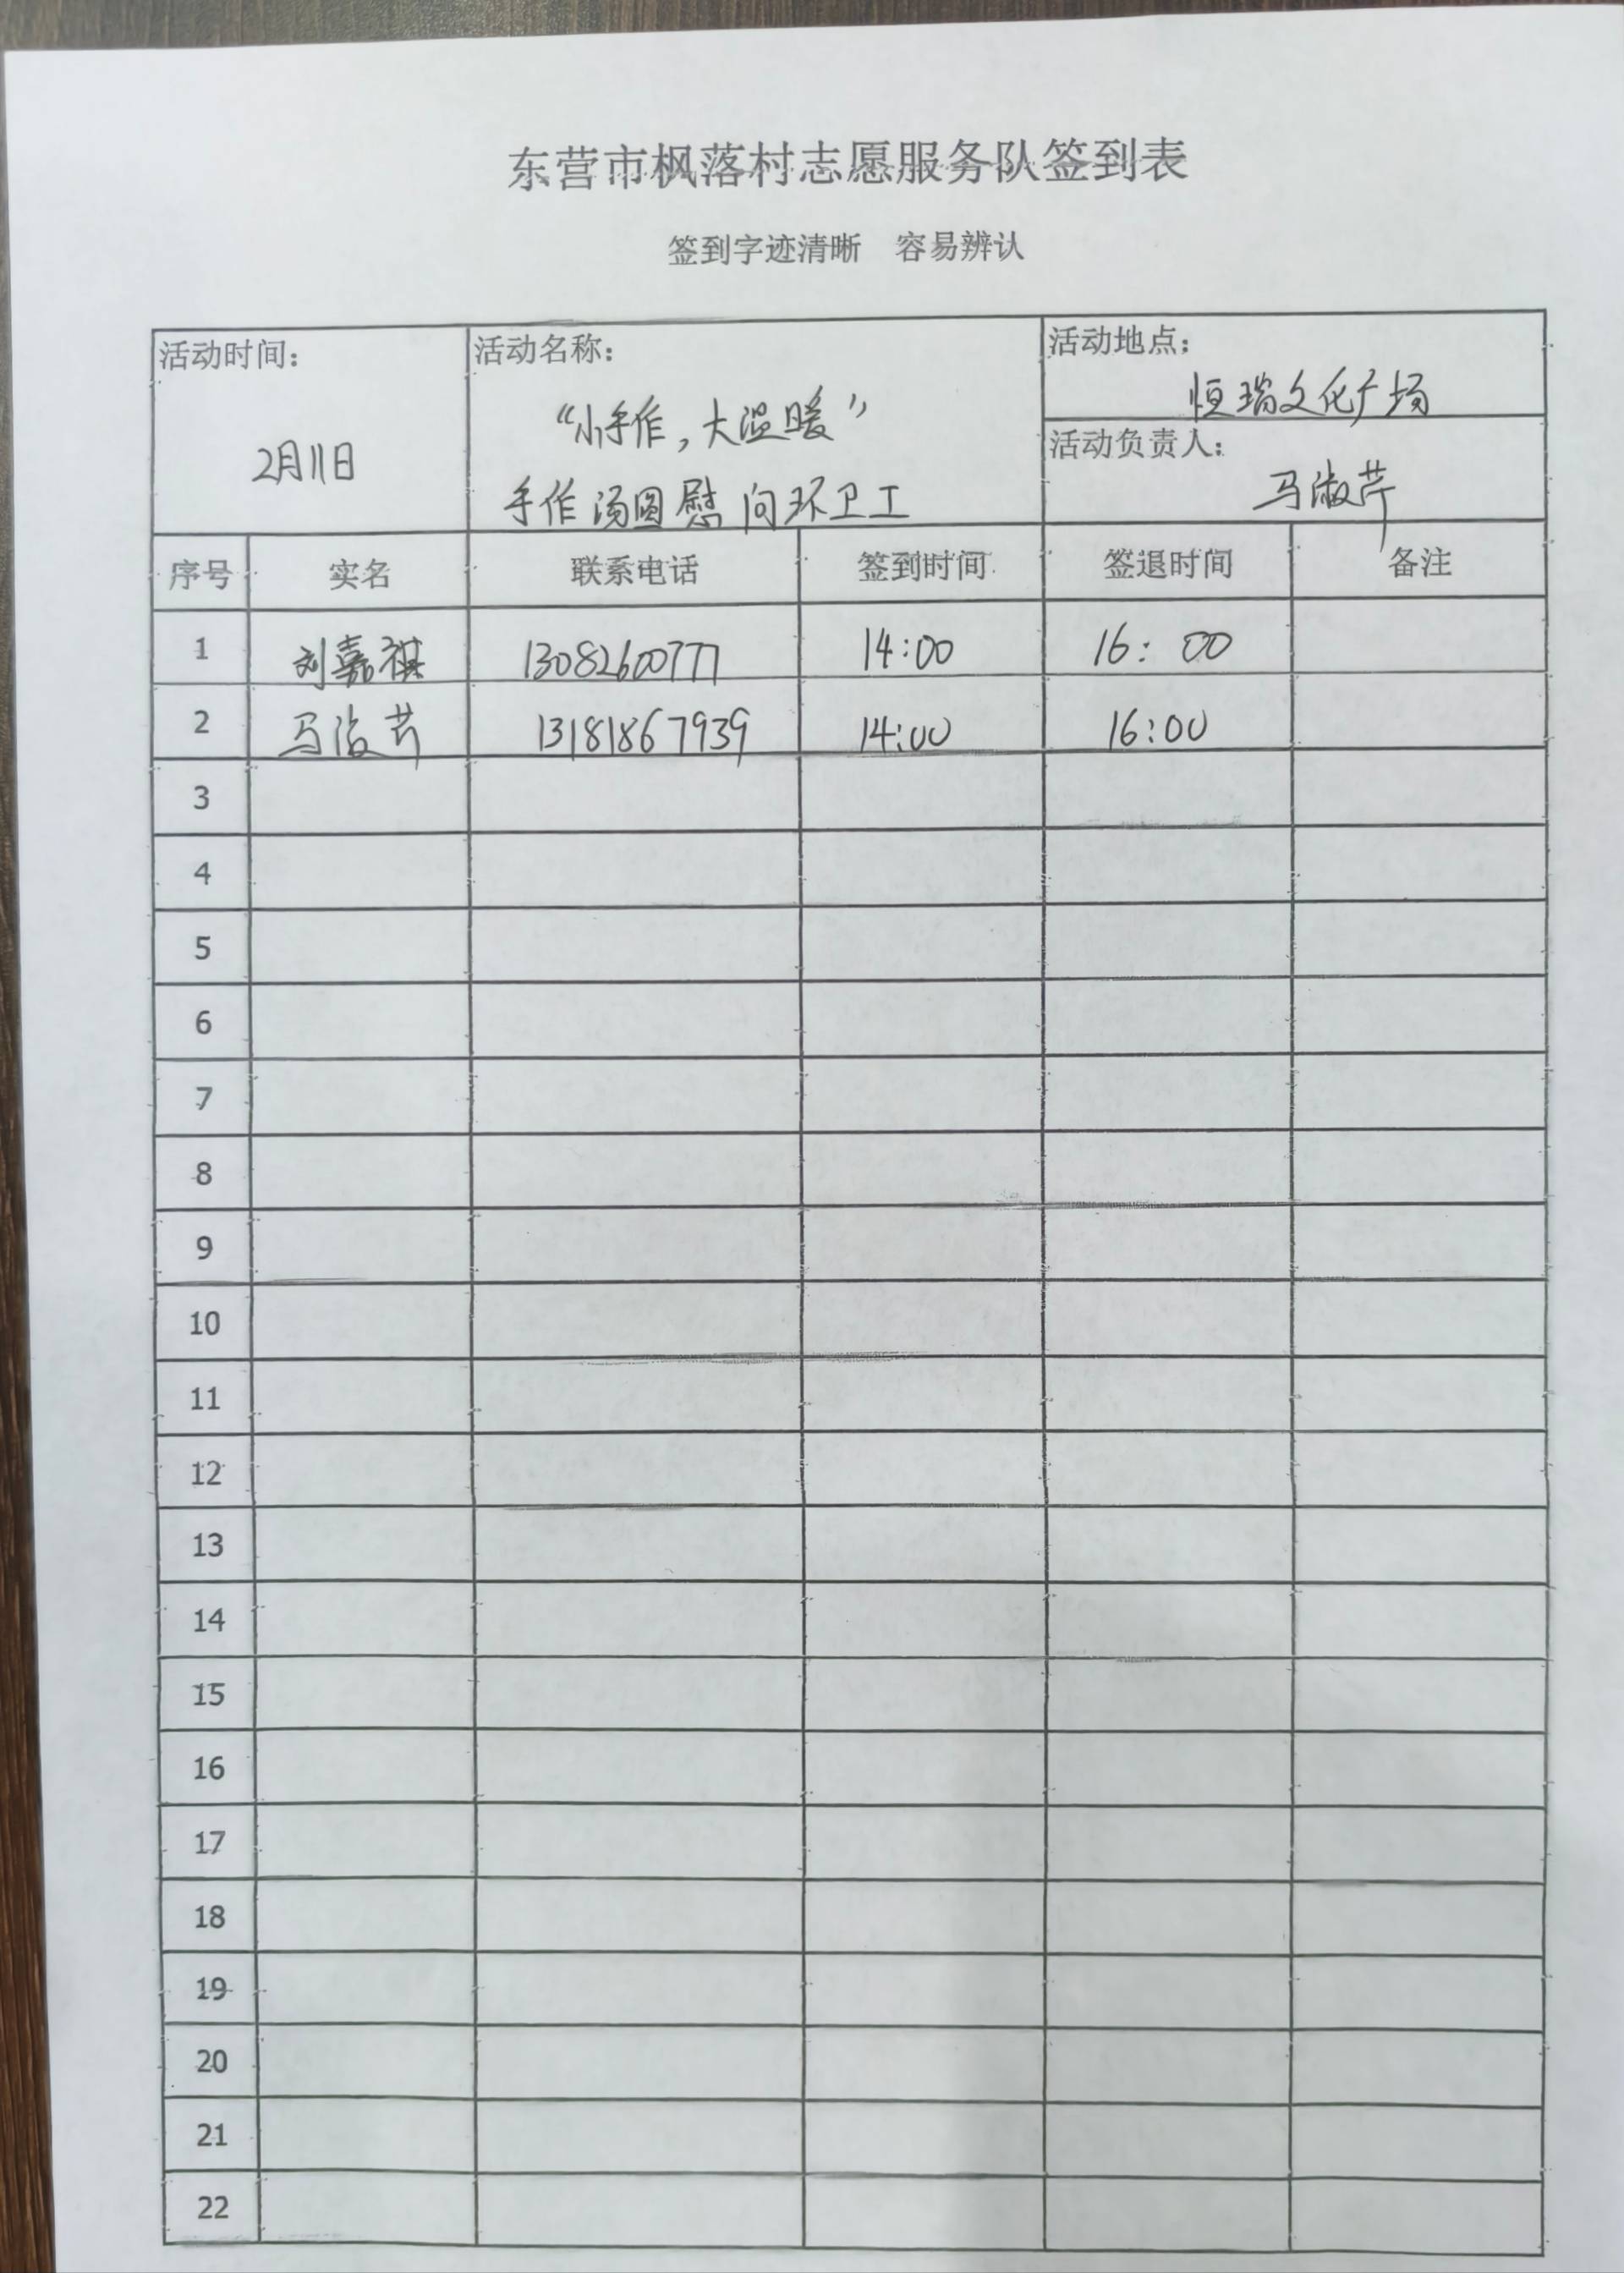 东营市枫落村志愿服务队签到表
签到字迹清晰 容易辨认
活动时间：
2月11日
活动名称：
“小手作，大温暖”
手作汤圆慰问环卫工
活动地点；
恒瑞文化广场
活动负责人：
马淑芹
序号 实名 联系电话 签到时间 签退时间 备注
1 刘嘉祺 13082600777 14:00 16:00
2 马淑芹 13181867939 14:00 16:00
3
4
5
6
7
8
9
10
11
12
13
14
15
16
17
18
19
20
21
22